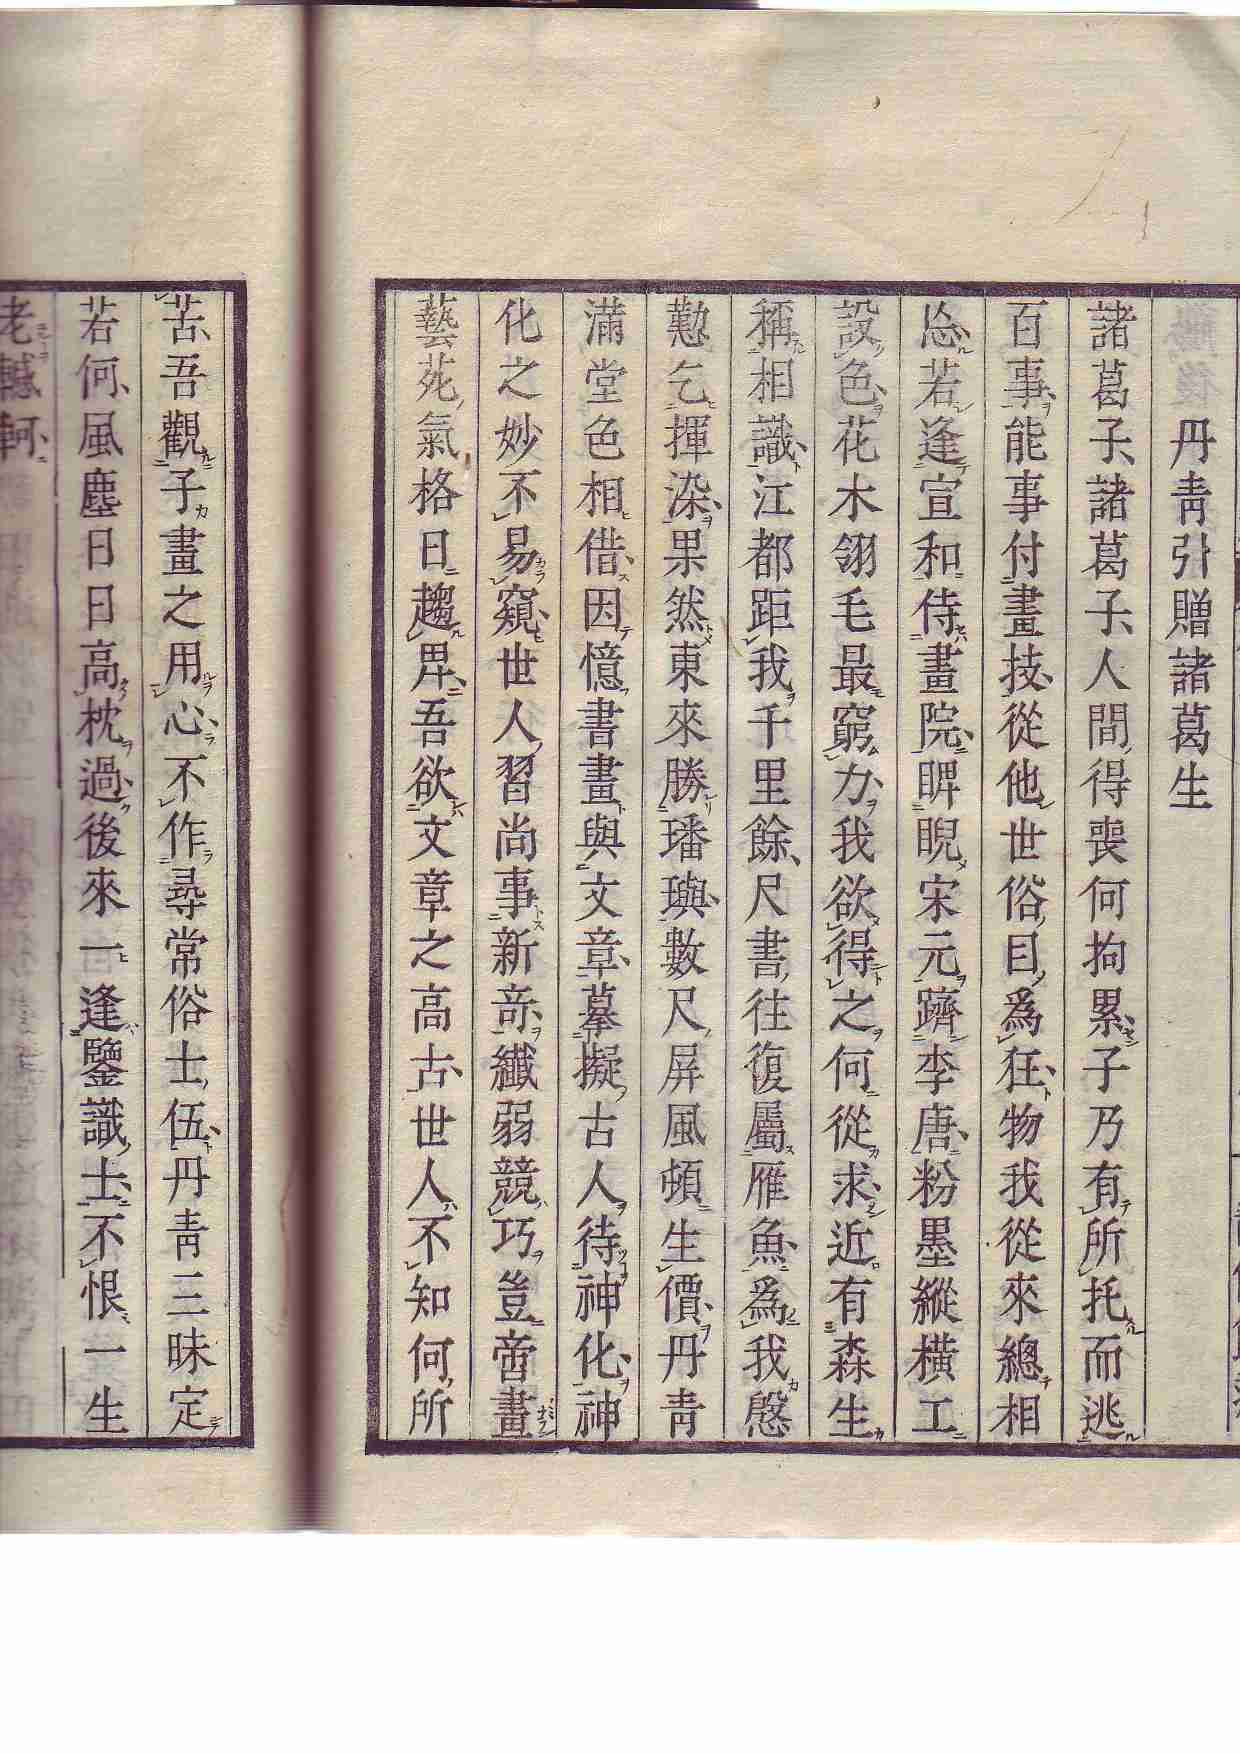 丹青引贈諸葛生
諸葛子諸葛子人間得喪何拘累子乃有所托而逃
百事能事付畫技從他世俗目爲狂物我從來總相
忘若逢宣和侍畫院睥睨宋元躋李唐粉墨縱橫工
設色花木翎毛最窮力我欲得之何從求近有森生
稱相識江都距我千里餘尺書往復屬雁魚爲我慇
懃乞揮染果然東來勝璠璵數尺屏風頓生價丹青
滿堂色相借因憶書畫與文章摹擬古人待神化神
化之妙不易窺世人習尚事新奇纖弱競巧豈啻畫
藝苑氣格日趨卑吾欲文章之高古世人不知何所
苦吾觀子畫之用心不作尋常俗士伍丹青三昧定
若何風塵日日高枕過後來一逢鑒識士不恨一生
老轗軻